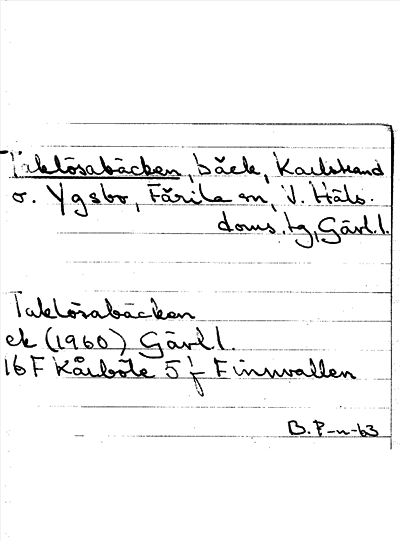 Taklösabäcken, bäck, Karlstrand
o. Ygsbo, Färila sn, V. Häls.
doms. tg, Gävl. l.
Taklösabäcken
ek (1960) Gävl. l.
16 F Kårböle 5 f Finnvallen
B. P-n-63